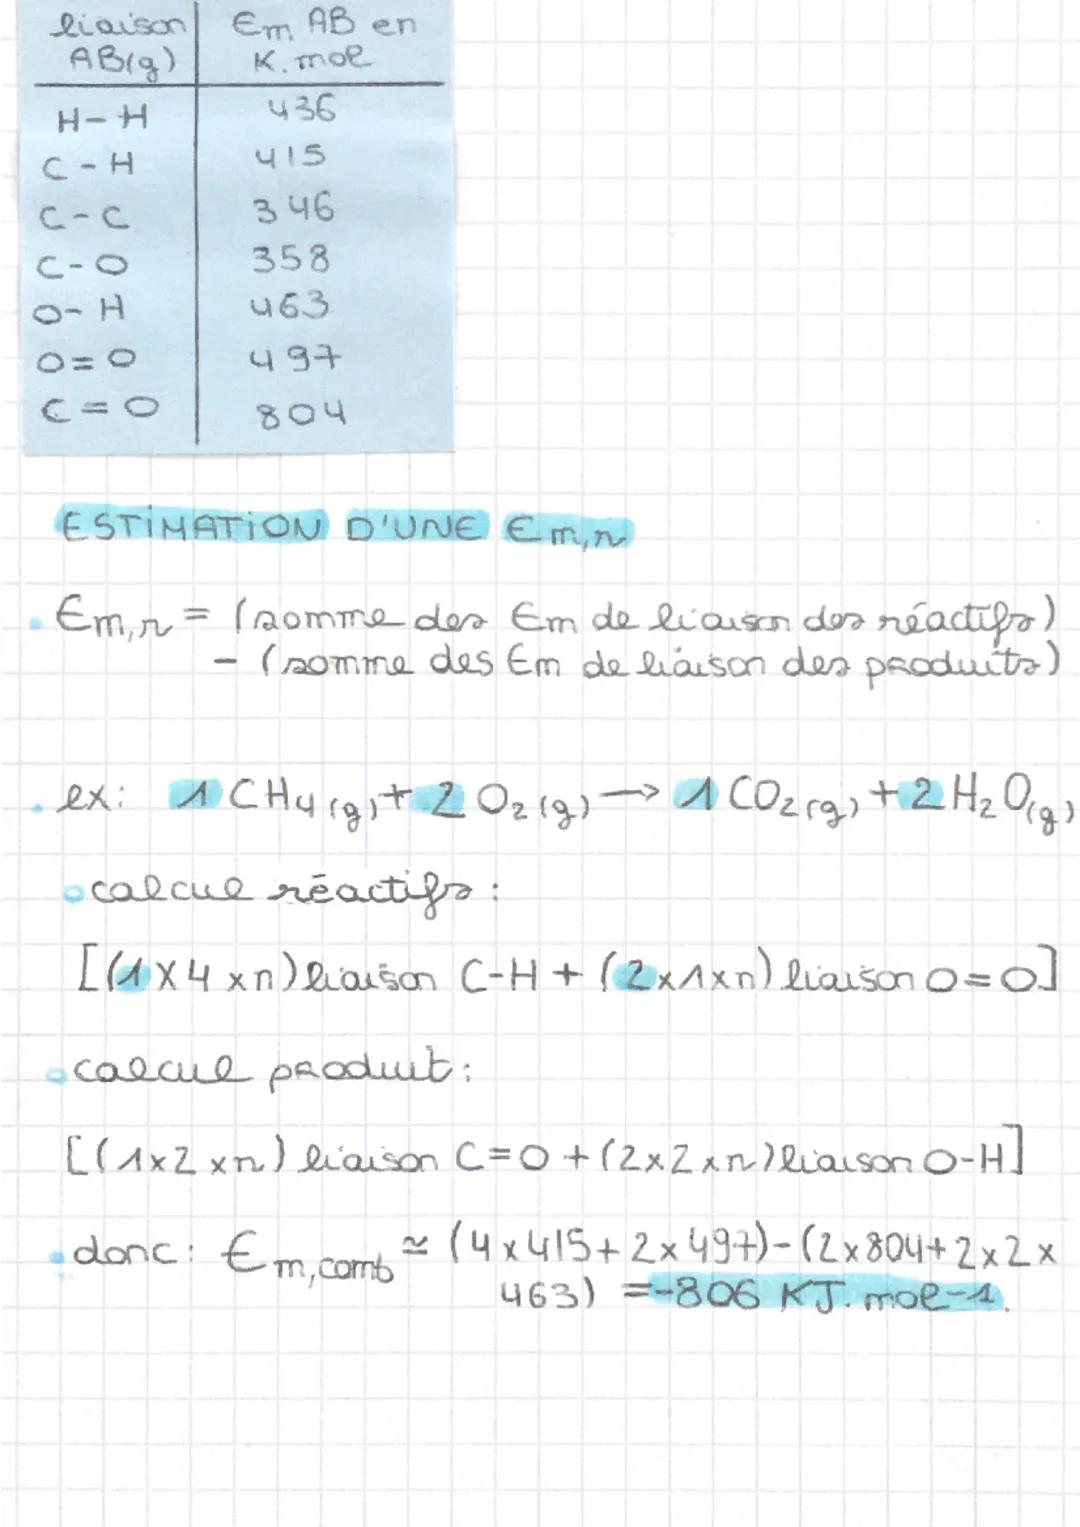 liaison AB(g) | Em AB en K.mol
H-H 436
C-H 415
C-C 346
C-O 358
O-H 463
O=O 497
C=O 804
ESTIMATION D'UNE Em,r
• Em,r = (somme des Em de liaison des réactifs)
- (somme des Em de liaison des produits)
• ex: 1 CH4(g) + 2 O2(g) → 1 CO2(g) + 2 H2O(g)
calcul réactifs :
[(1x4xn) liaison C-H + (2x1xn) liaison O=O]
calcul produit :
[(1x2xn) liaison C=O + (2x2xn) liaison O-H]
• donc : Em,comb ≃ (4x415+2x497)-(2x804+2x2x
463) =-806 KJ.mol-1.